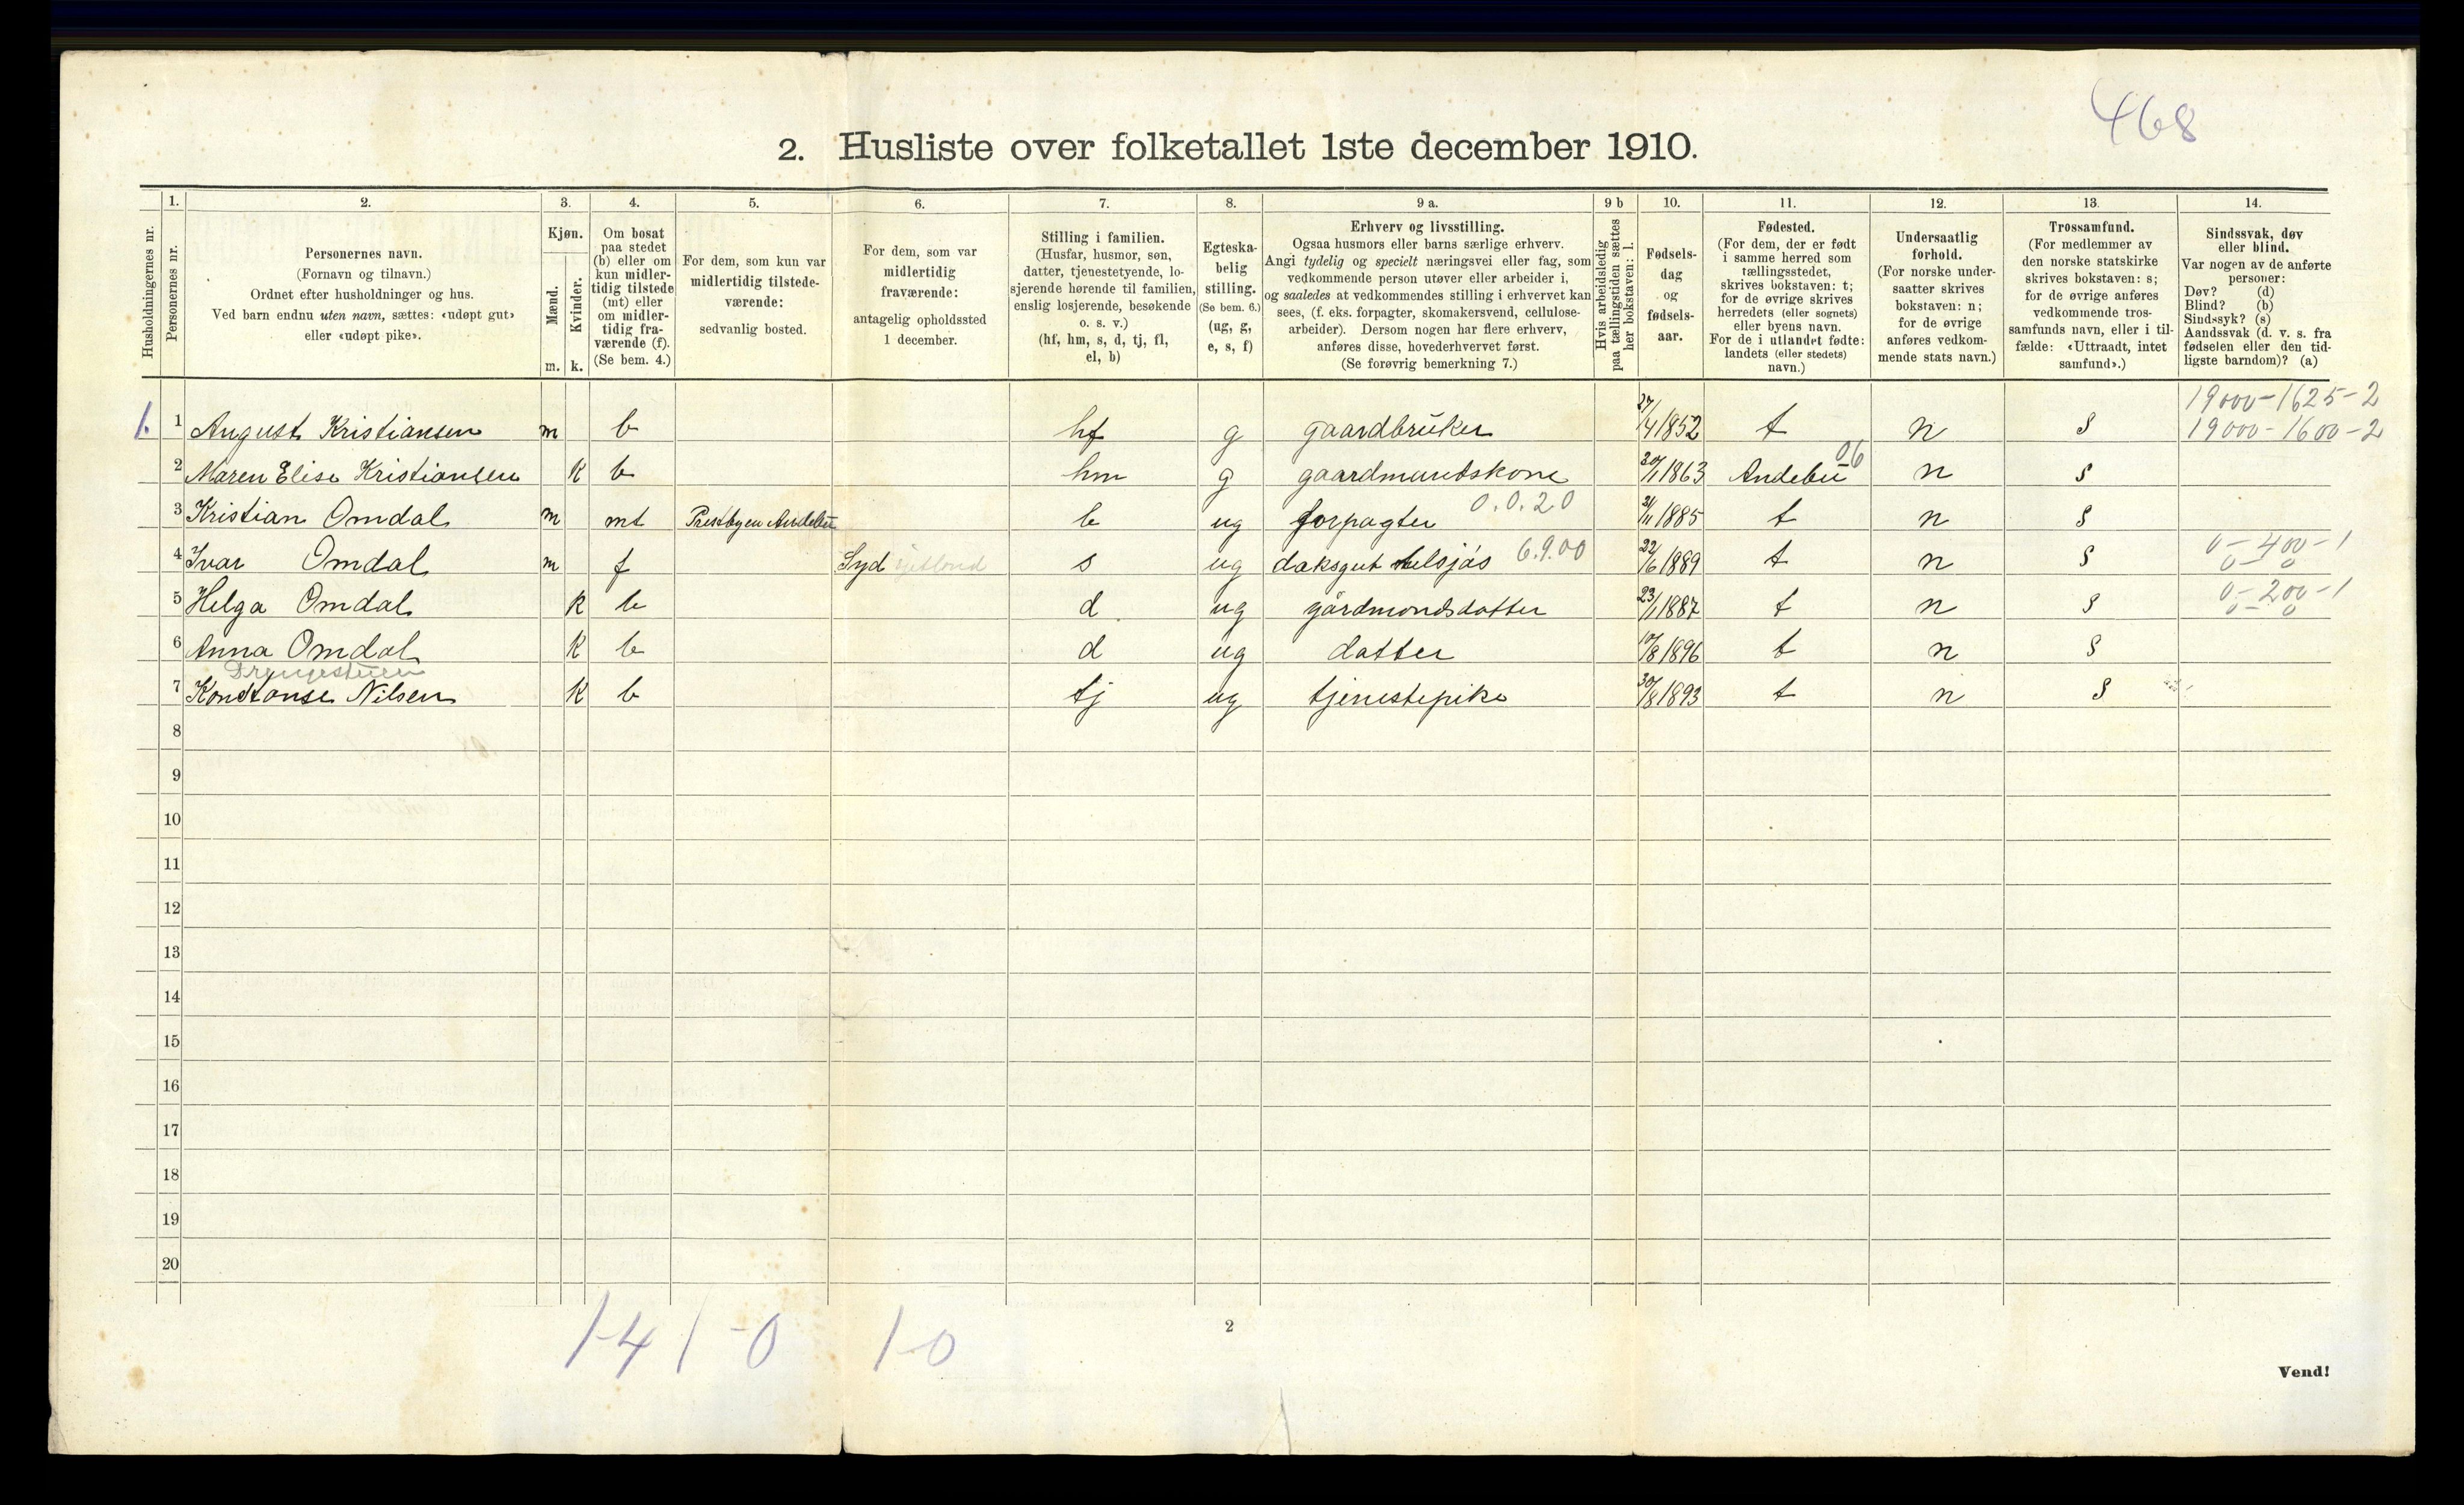 468
2. Husliste over folketallet 1ste december 1910.
Husholdningernes nr.
1. Personernes nr.
2. Personernes navn.
(Fornavn og tilnavn.)
Ordnet efter husholdninger og hus.
Ved barn endnu uten navn, sættes: «udøpt gut»
eller «udøpt pike».
3. Kjøn.
Mænd. Kvinder.
m. k.
4. Om bosat
paa stedet
(b) eller om
kun midler-
tidig tilstede
(mt) eller
om midler-
tidig fra-
værende (f).
(Se bem. 4.)
5. For dem, som kun var
midlertidig tilstede-
værende:
sedvanlig bosted.
6. For dem, som var
midlertidig
fraværende:
antagelig opholdssted
1 december.
7. Stilling i familien.
(Husfar, husmor, søn,
datter, tjenestetyende, lo-
sjerende hørende til familien,
enslig losjerende, besøkende
o. s. v.)
(hf, hm, s, d, tj, fl,
el, b)
8. Egteska-
belig
stilling.
(Se bem. 6.)
(ug, g,
e, s, f)
9 a. Erhverv og livsstilling.
Ogsaa husmors eller barns særlige erhverv.
Angi tydelig og specielt næringsvei eller fag, som
vedkommende person utøver eller arbeider i,
og saaledes at vedkommendes stilling i erhvervet kan
sees, (f. eks. forpagter, skomakersvend, cellulose-
arbeider). Dersom nogen har flere erhverv,
anføres disse, hovederhvervet først.
(Se forøvrig bemerkning 7.)
9 b Hvis arbeidsledig
paa tællingstiden sættes
her bokstaven: l.
10. Fødsels-
dag
og
fødsels-
aar.
11. Fødested.
(For dem, der er født
i samme herred som
tællingsstedet,
skrives bokstaven: t;
for de øvrige skrives
herredets (eller sognets)
eller byens navn.
For de i utlandet fødte:
landets (eller stedets)
navn.)
12. Undersaatlig
forhold.
(For norske under-
saatter skrives
bokstaven: n;
for de øvrige
anføres vedkom-
mende stats navn.)
13. Trossamfund.
(For medlemmer av
den norske statskirke
skrives bokstaven: s;
for de øvrige anføres
vedkommende tros-
samfunds navn, eller i til-
fælde: «Uttraadt, intet
samfund».)
14. Sindssvak, døv
eller blind.
Var nogen av de anførte
personer:
Døv? (d)
Blind? (b)
Sindssyk? (s)
Aandssvak (d. v. s. fra
fødselen eller den tid-
ligste barndom)? (a)
19000-1625-2
1. 1 August Kristiansen m b hf g gaardbruker 27/4 1852 t n s 19000-1600-2
06
2 Maren Elise Kristiansen k b hm g gaardmandskone 20/1 1863 Andebu n s
3 Kristian Omdal m mt Prestbyen Andebu b ug forpagter 0.0.20 21/11 1885 t n s
4 Ivar Omdal m f Syd s ug 6.9.00 22/6 1889 t n s 0-400-1
0-0
5 Helga Omdal k b d ug gårdmandsdatter 23/1 1887 t n s 0-200-1
0-0
6 Anna Omdal k b d ug datter 10/8 1896 t n s
7 Konstanse Nilsen k b tj ug tjenestepike 30/8 1893 t n s
8
9
10
11
12
13
14
15
16
17
18
19
20
1-4 1-0 1-0
2
Vend!